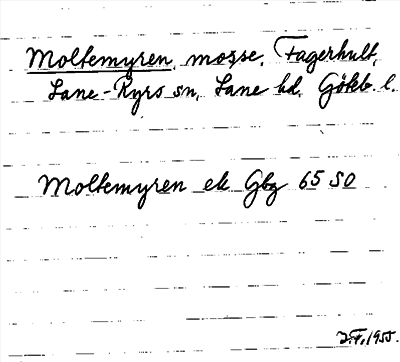 Moltemyren, mosse, Fagerhult,
Lane-Ryrs sn, Lane hd, Götebl.
Moltemyren ek Gbg 65 SO
J.F. 1955.